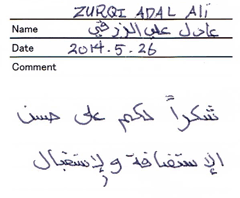 ZURQI ADAL Ali
Name عادل علي الزرقي
Date 2014.5.26
Comment
شكراً لكم على حسن
الإستضافة والإستقبال